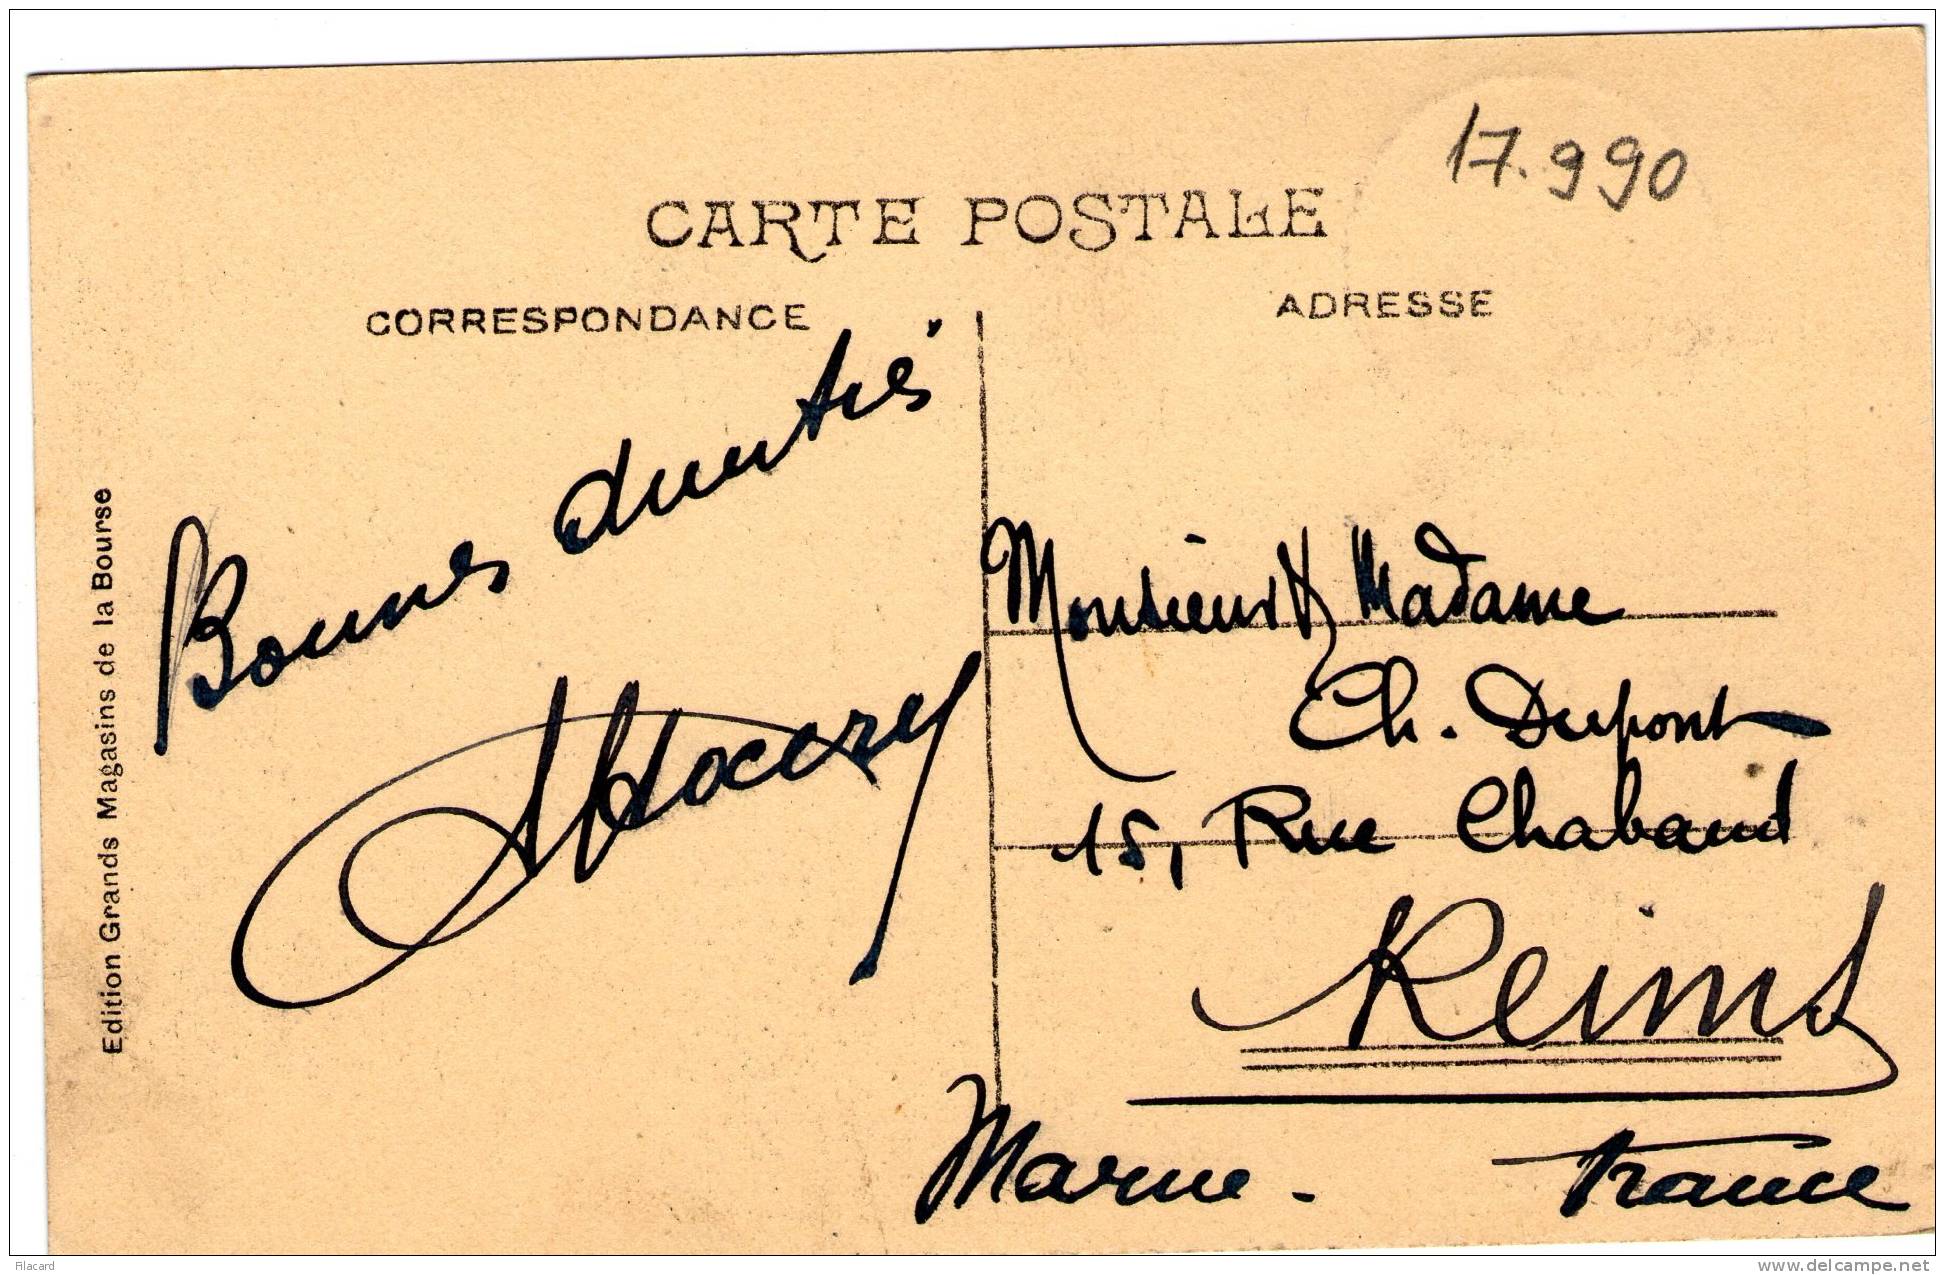 17.990
CARTE POSTALE
CORRESPONDANCE
ADRESSE
Bonnes amitiés
Monsieur & Madame
Ch. Dupont
15, Rue Chabaud
Reims
Marne - France
Edition Grands Magasins de la Bourse
Filacard
delcampe.net